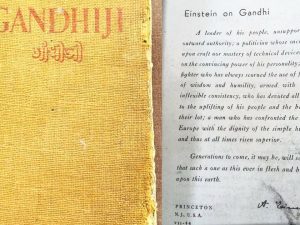 GANDHIJI
गांधीजी
Einstein on Gandhi
A leader of his people, unsupported
outward authority; a politician whose
upon craft nor mastery of technical devices
on the convincing power of his personality
fighter who has always scorned the use of
of wisdom and humility, armed with
inflexible consistency, who has devoted all
to the uplifting of his people and the
their lot; a man who has confronted the
Europe with the dignity of the simple
and thus at all times risen superior.
Generations to come, it may be, will
that such a one as this ever in flesh and
upon this earth.
PRINCETON
N.J., U.S.A.
A.